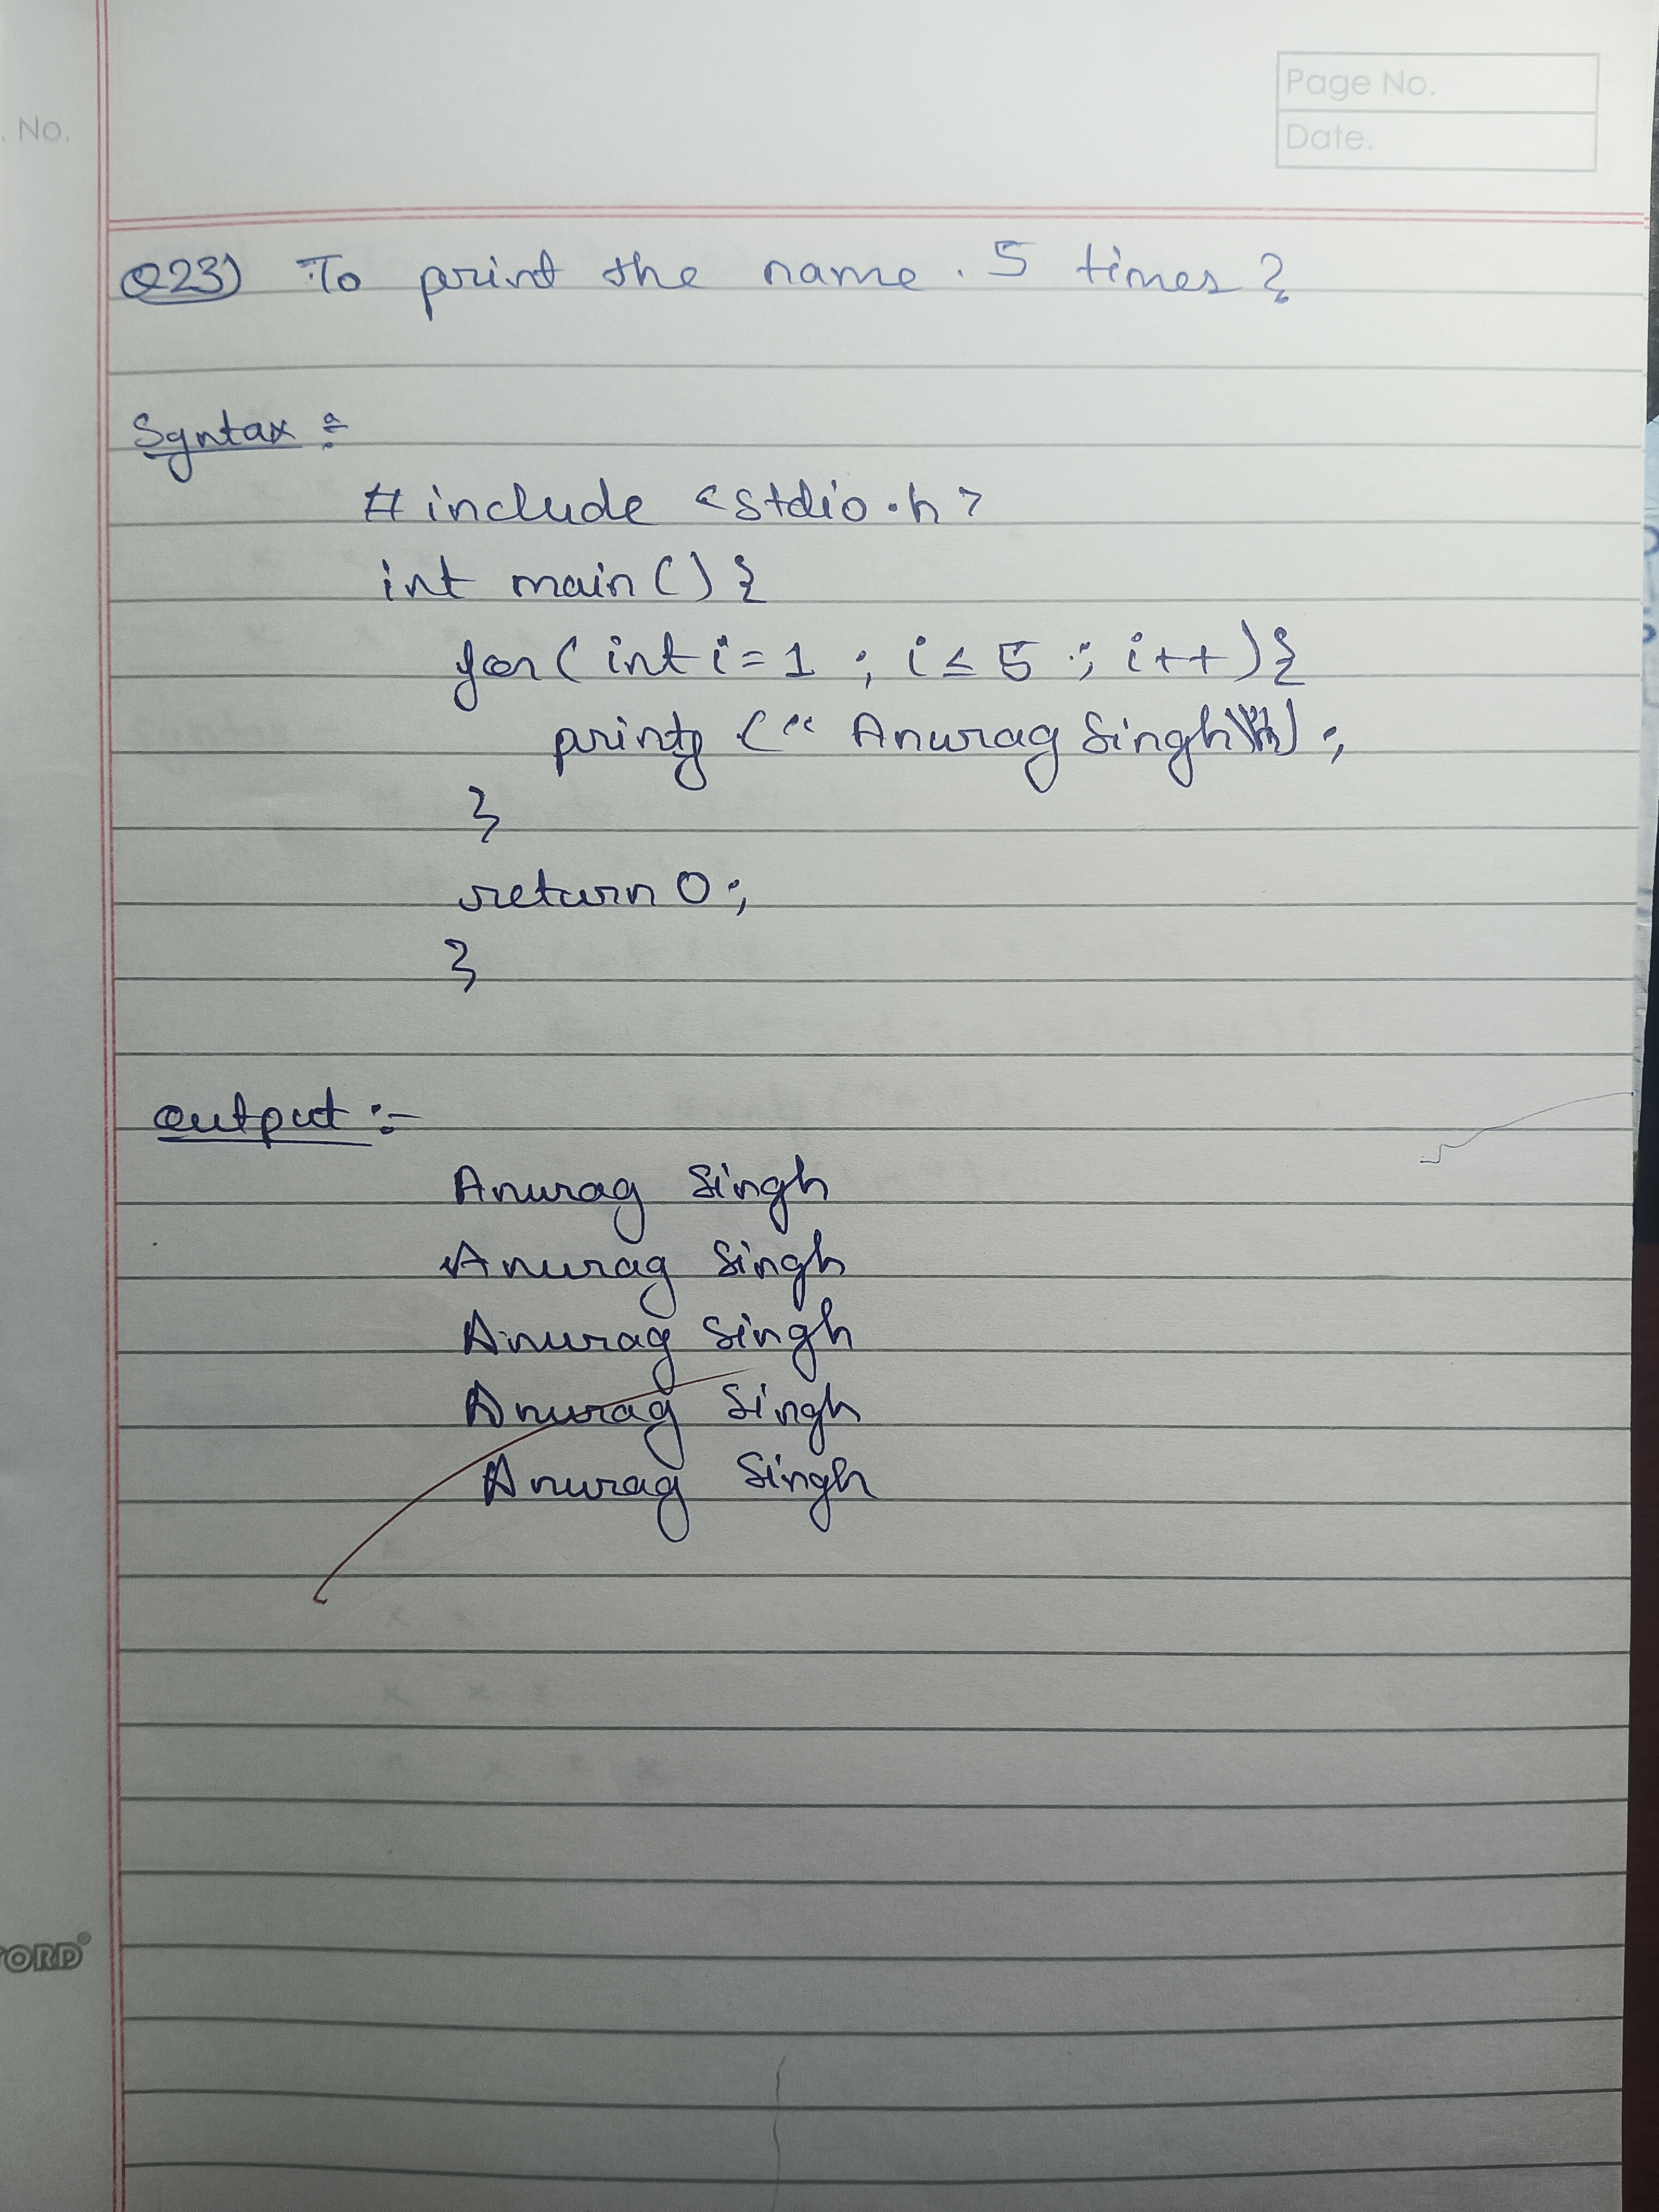 Page No.
Date.
. No.
Q23) To print the name. 5 times?
Syntax :-
# include <stdio.h>
int main() {
for( int i = 1 ; i ≤ 5 ; i++){
printf (" Anurag Singh\n");
}
return 0;
}
output :-
Anurag Singh
Anurag Singh
Anurag Singh
Anurag Singh
Anurag Singh
ORD